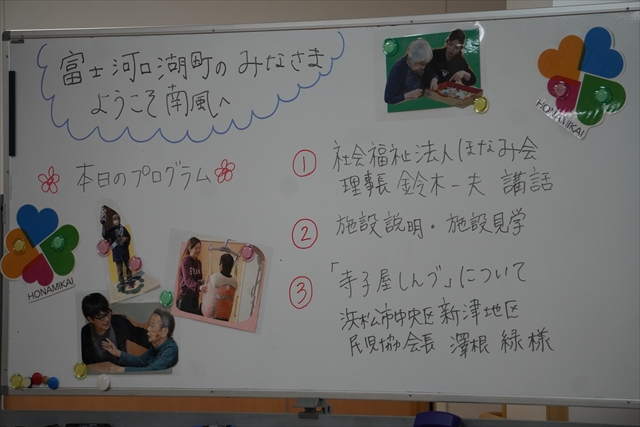 富士河口湖町のみなさま
ようこそ南風へ
本日のプログラム
① 社会福祉法人ほなみ会
理事長 鈴木一夫 講話
② 施設説明・施設見学
③ 「寺子屋しんづ」について
浜松市中央区新津地区
民児協会長 澤根 緑様
HONAMIKAI
HONAMIKAI